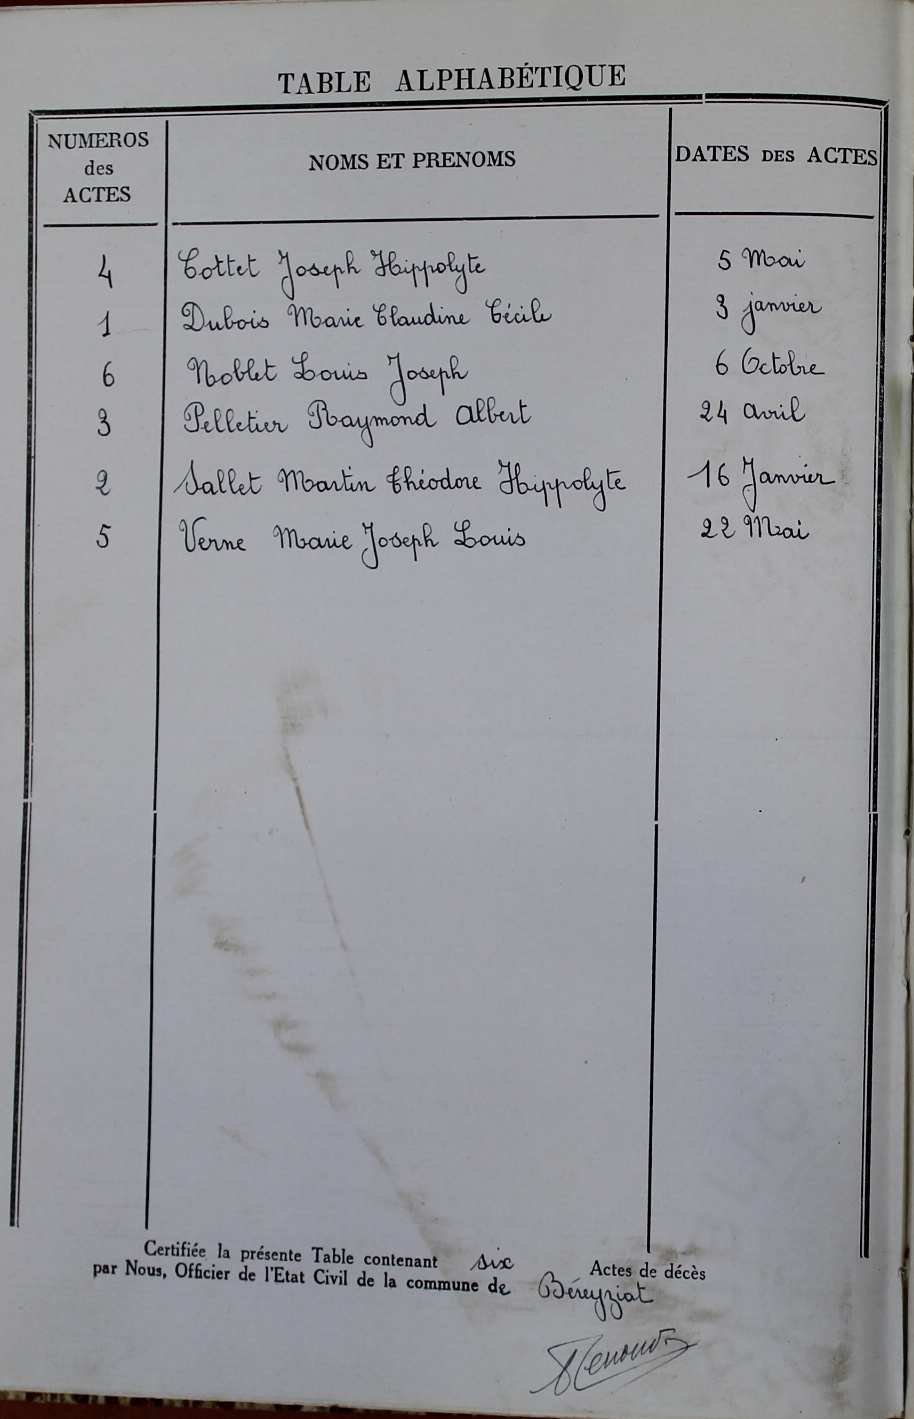 TABLE ALPHABÉTIQUE
NUMEROS des ACTES NOMS ET PRENOMS DATES DES ACTES
4 Cottet Joseph Hippolyte 5 Mai
1 Dubois Marie Claudine Cécile 3 janvier
6 Noblet Louis Joseph 6 Octobre
3 Pelletier Raymond Albert 24 avril
2 Sallet Martin Théodore Hippolyte 16 Janvier
5 Verne Marie Joseph Louis 22 Mai
Certifiée la présente Table contenant six Actes de décès
par Nous, Officier de l'Etat Civil de la commune de Béreyziat